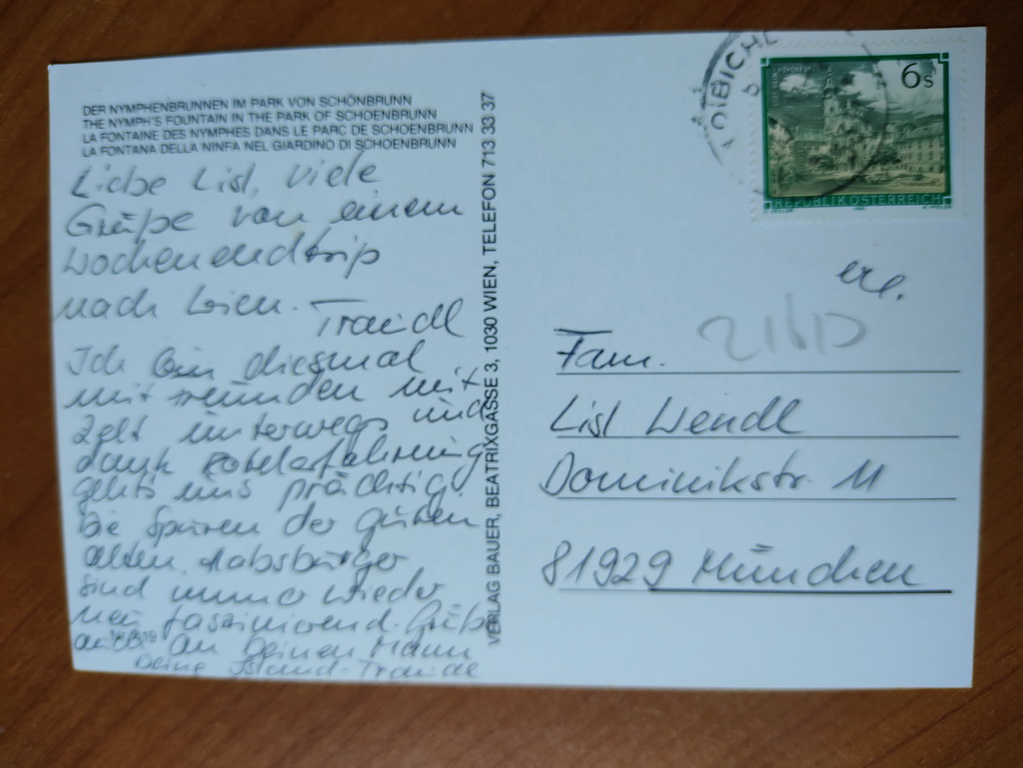 DER NYMPHENBRUNNEN IM PARK VON SCHÖNBRUNN
THE NYMPH'S FOUNTAIN IN THE PARK OF SCHOENBRUNN
LA FONTAINE DES NYMPHES DANS LE PARC DE SCHOENBRUNN
LA FONTANA DELLA NINFA NEL GIARDINO DI SCHOENBRUNN
Liebe Lisl, viele
Grüße von einem
Wochenendtrip
nach Wien. Traudl
Ich bin diesmal
mit Freunden mit
Zelt unterwegs und
dank
gehts uns prächtig.
Die Spuren der guten
alten Habsburger
sind immer wieder
neu faszinierend. Grüße
auch an Deinen Mann
Deine Island-Traudl
VERLAG BAUER, BEATRIXGASSE 3, 1030 WIEN, TELEFON 713 33 37
6s
REPUBLIK ÖSTERREICH
erl.
Fam.
Lisl Wendl
Dominikstr. 11
81929 München